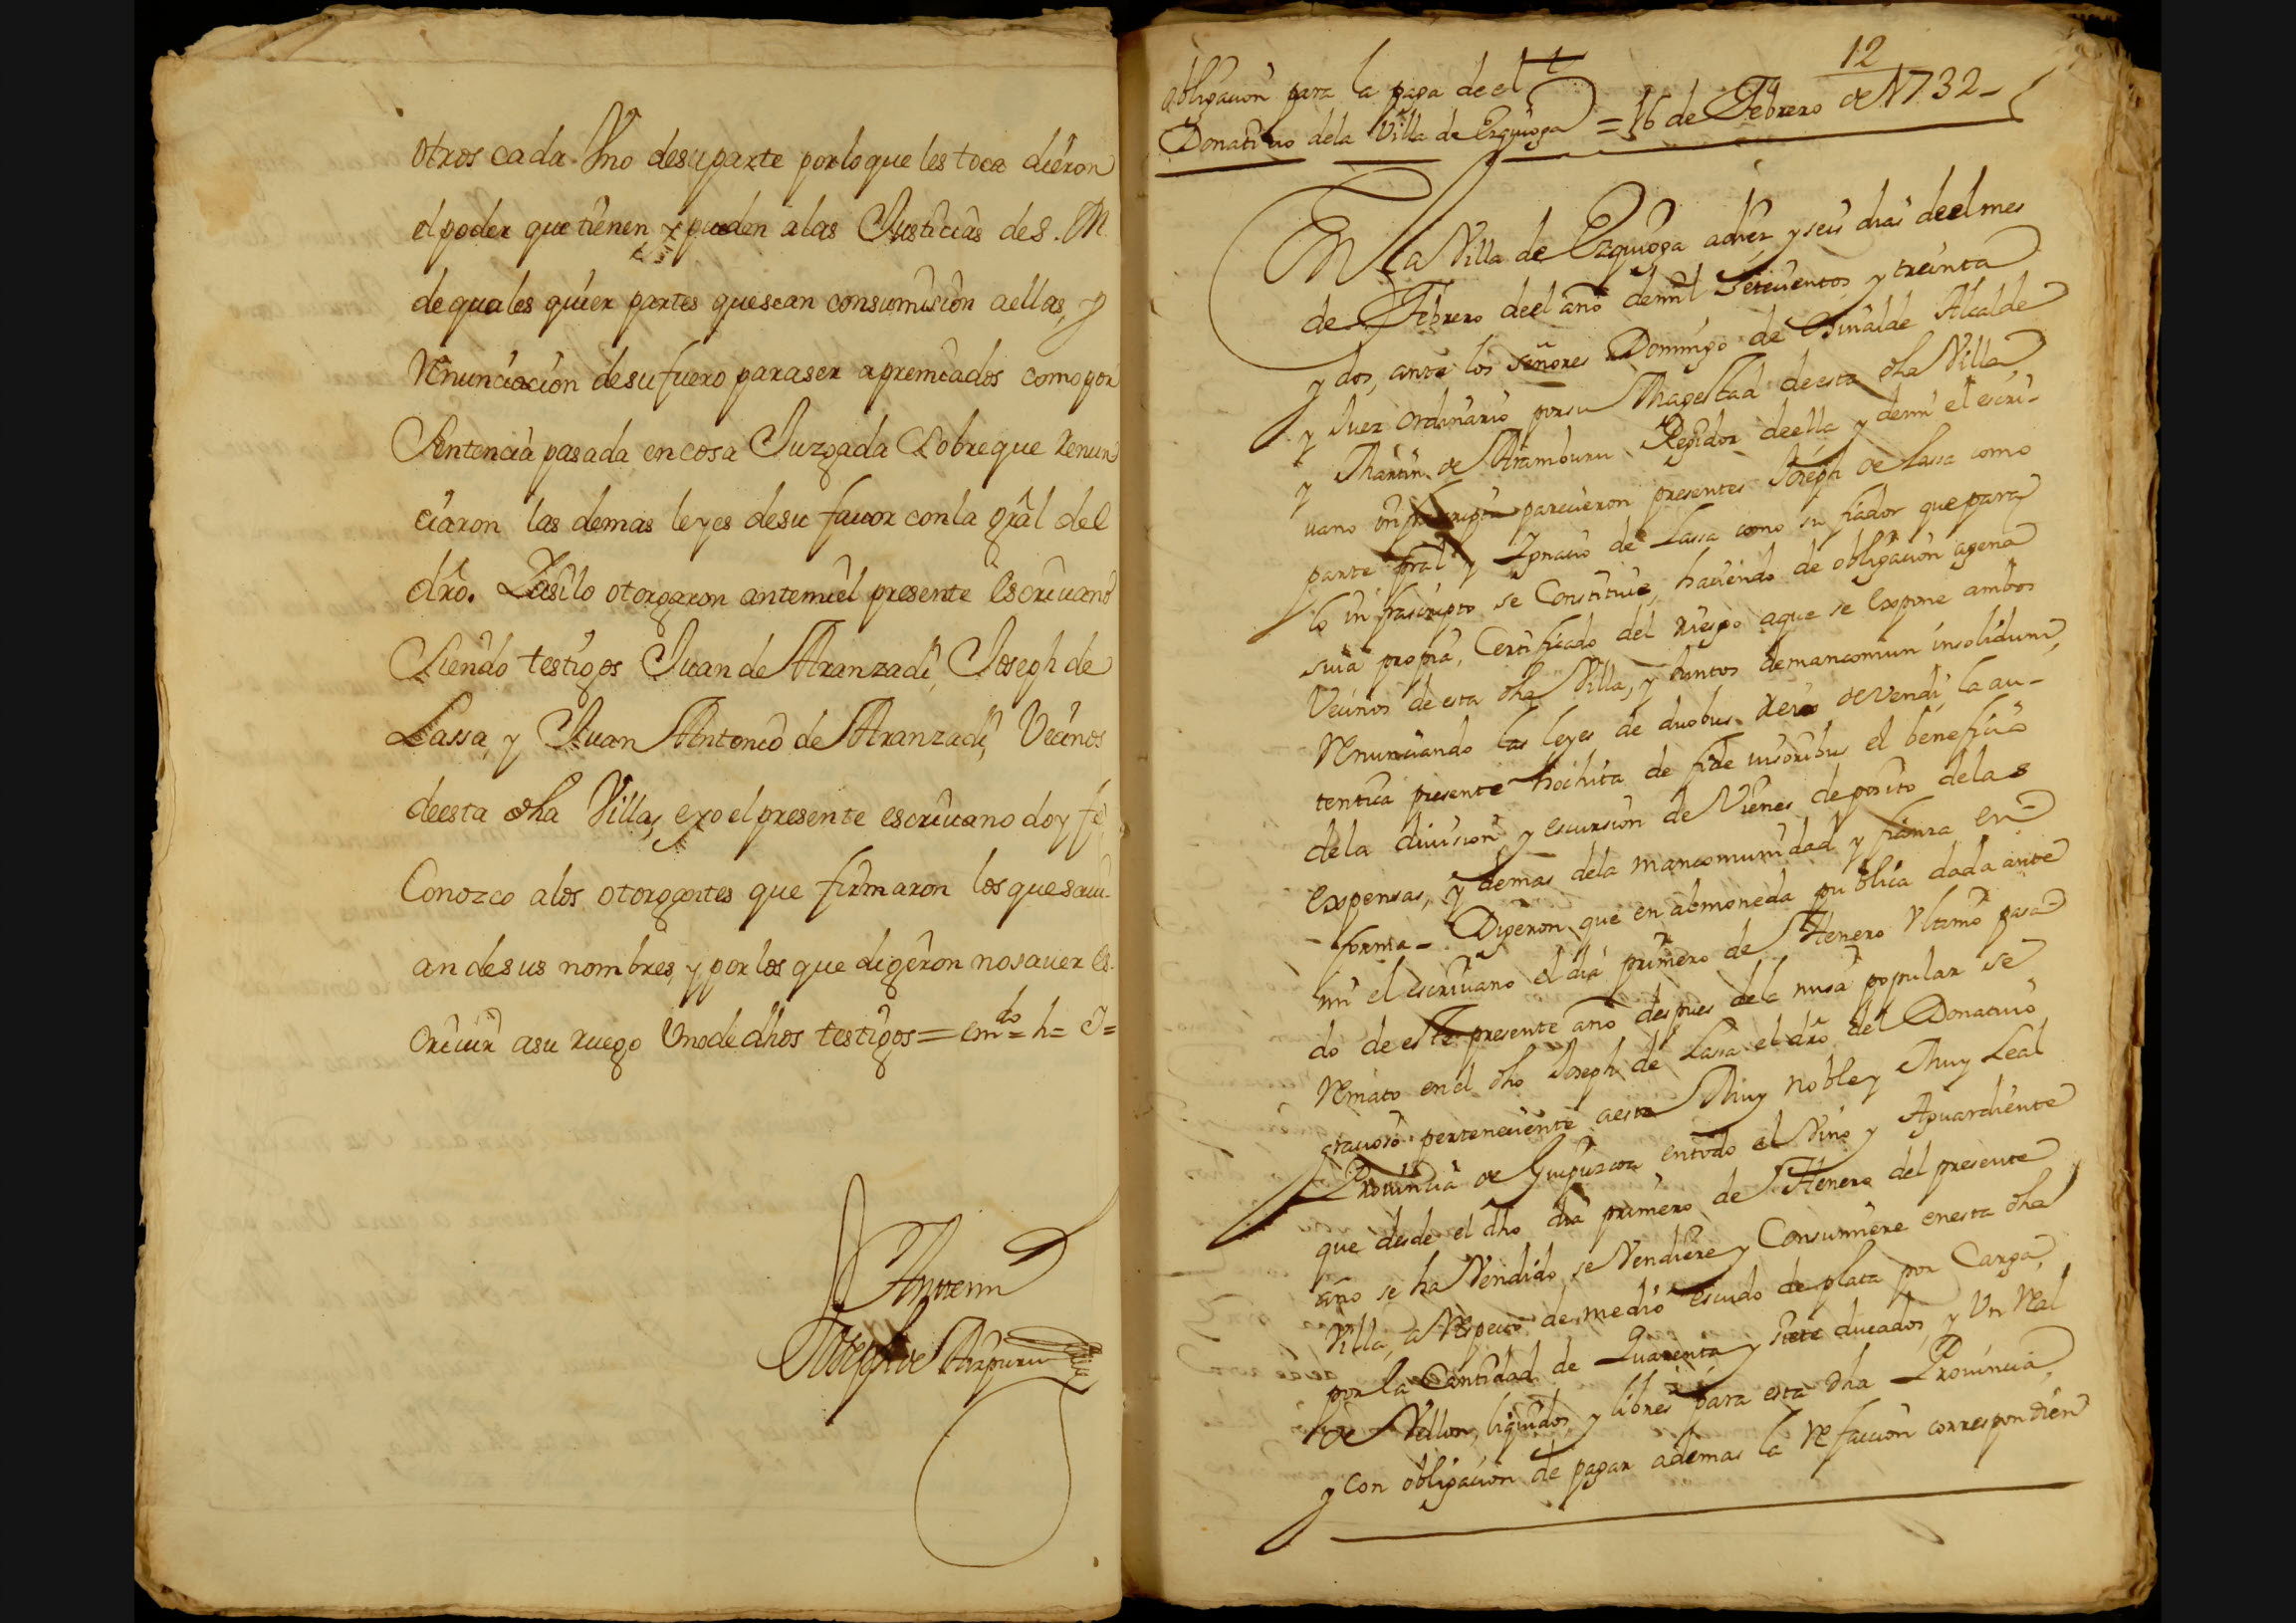 otros cada Vno desuparte porloque les toca dieron
el poder que tienen y pueden alas Justicias de S. M.
de quales quier partes quesean consumision aellas, y
Renunciacion desufuero paraser apremiados como por
Sentencia pasada en cosa Juzgada Sobreque Renun
ciaron las demas leyes desu fauor conla gral del
dro. Yasilo otorgaron antemi el presente Escriuano
Siendo testigos Juan de Aranzadi, Joseph de
Lassa, y Juan Antonio de Aranzadi, Vecinos
deesta dha Villa, eyo el presente escriuano doy fe
Conozco alos otorgantes que firmaron los que sau-
an desus nombres, y por los que digeron nosauer es-
criuir asu ruego Vno de dhos testigos = emdo = h = J =
Antemi
Joseph de Aizpuru
12
Obligacion para la paga de el
Donatiuo dela Villa de Ezquioga = 16 de Febrero de 1732 -
En la Villa de Ezquioga adiez y seis dias deel mes
de Febrero deel año demil Setecientos y treinta
y dos, ante los señores Domingo de Alcalde
y Juez ordinario porsu Magestad deesta dha Villa,
y Martin de Aramburu Regidor deella y demi el escri-
uano parecieron presentes Joseph de Lassa como
parte pral y Ignacio de Lassa como su fiador que para
lo infrascripto se Constituie, haciendo de obligacion agena
suia propia, Certificado del riesgo aque se Expone ambos
Vecinos de esta dha Villa, y Juntos demancomun insolidum,
Renunciando las leyes de duobus reis devendi, la au-
tentica presente hochita de fide iusoribus el beneficio
dela diuision y escursion de Vienes deposito delas
Expensas, y demas dela mancomunidad y fianza en
forma - Digeron que en almoneda publica dada ante
mi el escriuano el dia primero de Henero Vltimo pasa
do de este presente año despues dela misa popular se
Remato en el dho Joseph de Lassa el dro del Donatiuo
gracioso perteneciente aesta Muy noble y Muy Leal
Prouincia de Guipuzcoa entodo el Vino y Aguardiente
que desde el dho dia primero de Henero del presente
año se ha Vendido, se Vendiere y Consumiere enesta dha
Villa, a Respecto de medio escudo de plata por Carga,
por la Cantidad de Quarenta y siete ducados y Vn Real
de Vellon, liquidos y libres para esta dha Prouincia,
y con obligacion de pagar ademas la Refaccion correspondien